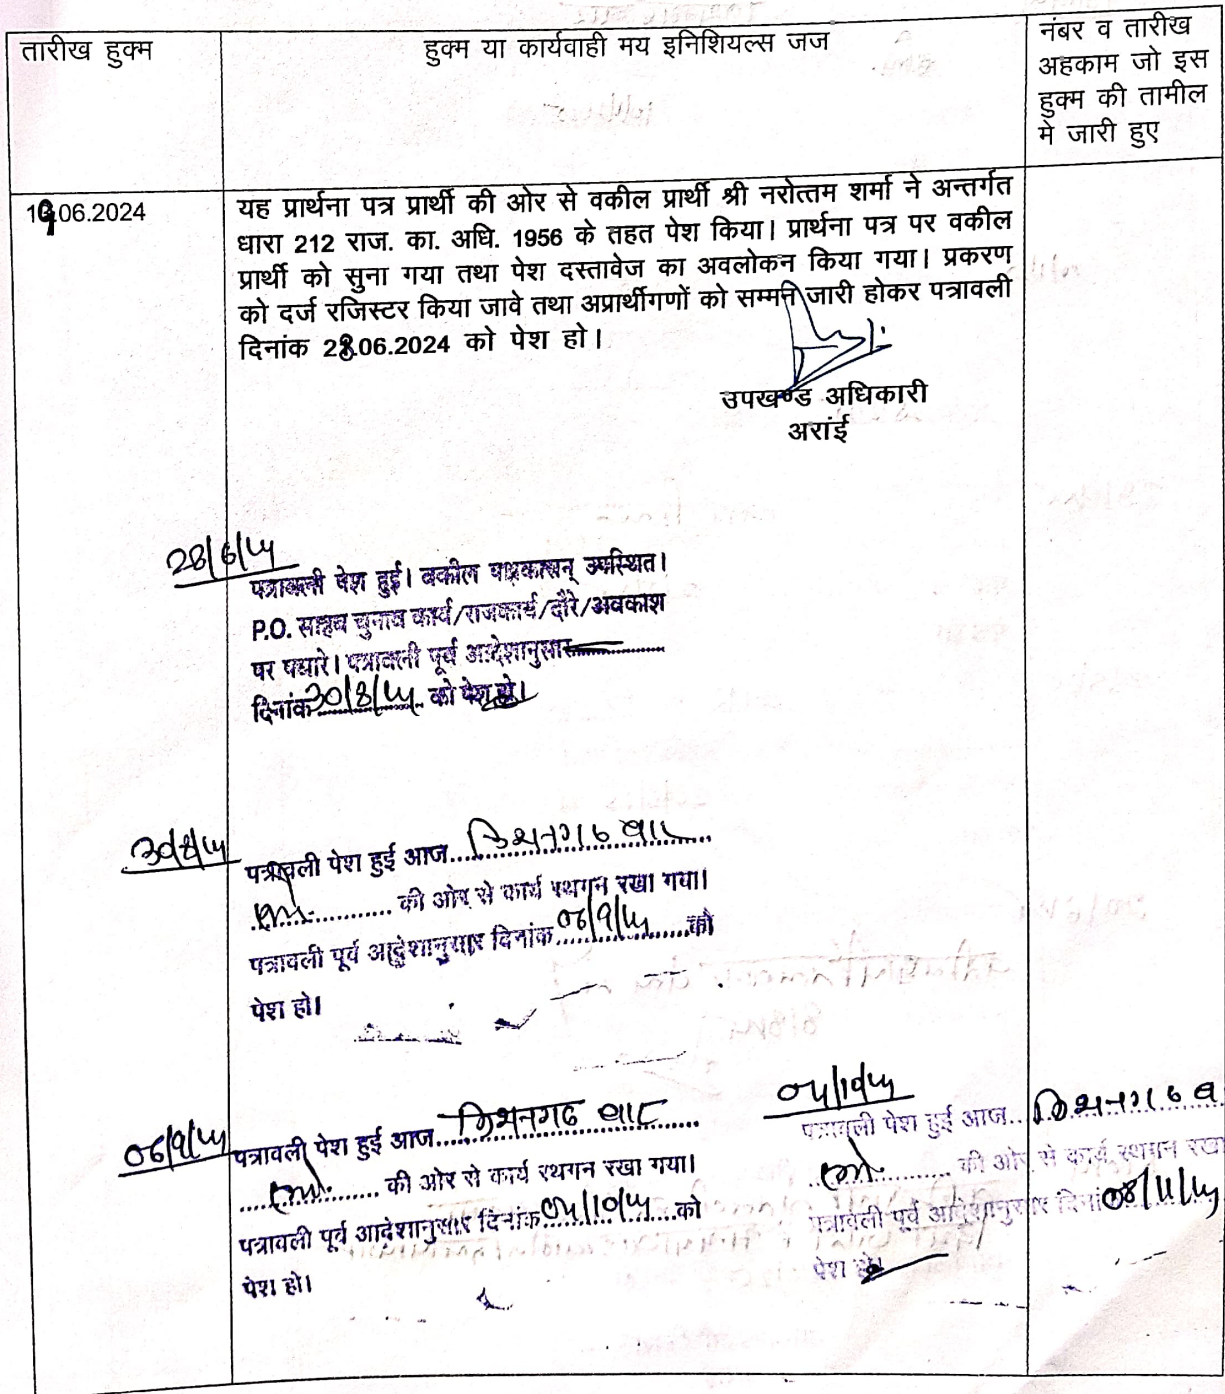 तारीख हुक्म
हुक्म या कार्यवाही मय इनिशियल्स जज
नंबर व तारीख
अहकाम जो इस
हुक्म की तामील
मे जारी हुए
19.06.2024
यह प्रार्थना पत्र प्रार्थी की ओर से वकील प्रार्थी श्री नरोत्तम शर्मा ने अन्तर्गत
धारा 212 राज. का. अधि. 1956 के तहत पेश किया। प्रार्थना पत्र पर वकील
प्रार्थी को सुना गया तथा पेश दस्तावेज का अवलोकन किया गया। प्रकरण
को दर्ज रजिस्टर किया जावे तथा अप्रार्थीगणों को सम्मन जारी होकर पत्रावली
दिनांक 28.06.2024 को पेश हो।
उपखण्ड अधिकारी
अरांई
28/6/24
पत्रावली पेश हुई। वकील पक्षकारान् उपस्थित।
P.O. साहब चुनाव कार्य/राजकार्य/दौरे/अवकाश
पर पधारे। पत्रावली पूर्व आदेशानुसार
दिनांक 30/8/24 को पेश हो।
30/8/24
पत्रावली पेश हुई आज किशनगढ बार
की ओर से कार्य स्थगन रखा गया।
पत्रावली पूर्व आदेशानुसार दिनांक 06/9/24 को
पेश हो।
06/9/24
पत्रावली पेश हुई आज किशनगढ बार
की ओर से कार्य स्थगन रखा गया।
पत्रावली पूर्व आदेशानुसार दिनांक 04/10/24 को
पेश हो।
04/10/24
पत्रावली पेश हुई आज किशनगढ ब
की ओर से कार्य स्थगन रखा
पत्रावली पूर्व आदेशानुसार दिनां 08/11/24
पेश हो।